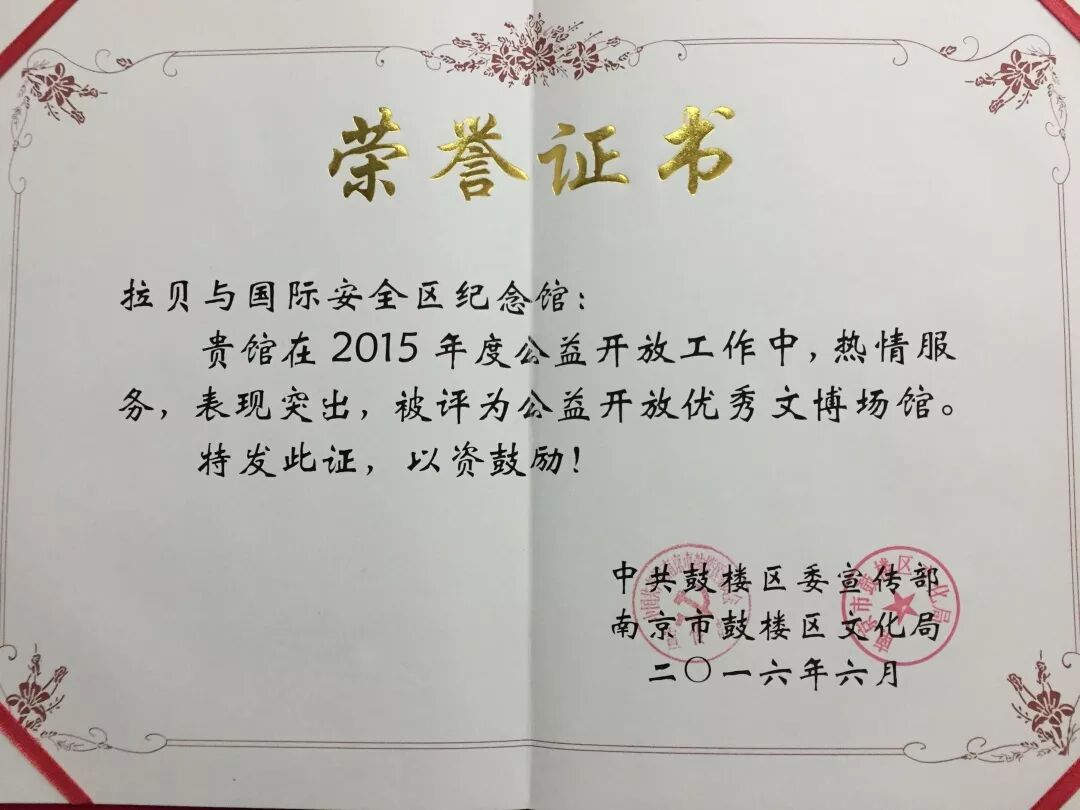 荣誉证书
拉贝与国际安全区纪念馆：
贵馆在 2015 年度公益开放工作中，热情服
务，表现突出，被评为公益开放优秀文博场馆。
特发此证，以资鼓励！
中共鼓楼区委宣传部
南京市鼓楼区文化局
二〇一六年六月
南京市鼓楼区文化局